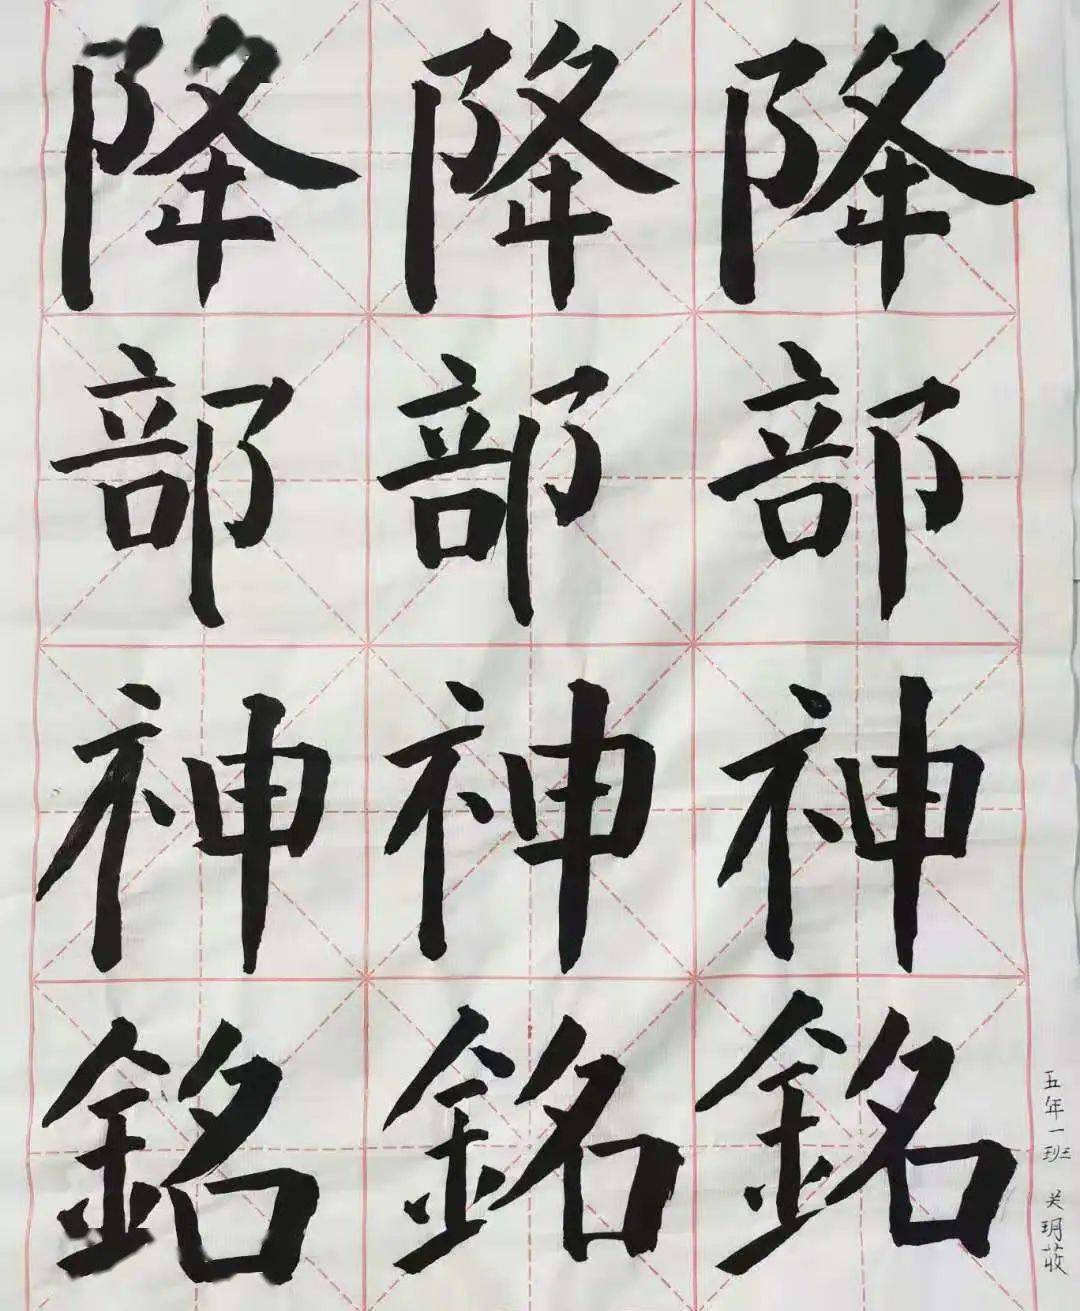 降降降
部部部
神神神
銘銘銘
五年一班 关玥